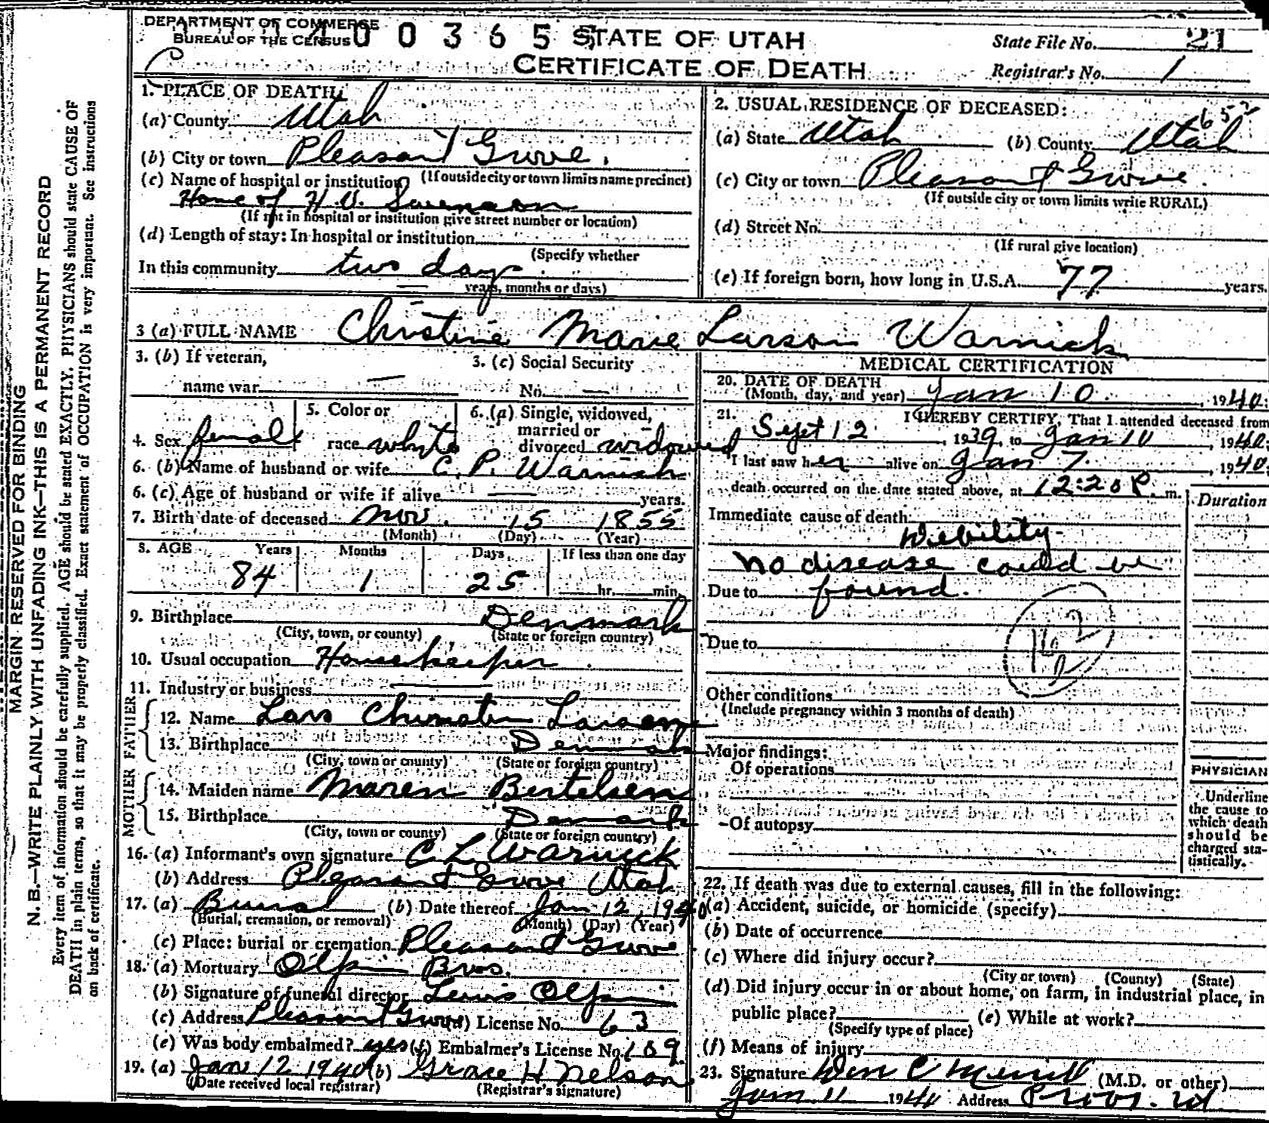 DEPARTMENT OF COMMERCE
BUREAU OF THE CENSUS
400365
STATE OF UTAH
CERTIFICATE OF DEATH
State File No. 21
Registrar's No. 1
MARGIN RESERVED FOR BINDING
N. B.—WRITE PLAINLY WITH UNFADING INK—THIS IS A PERMANENT RECORD
Every item of information should be carefully supplied. AGE should be stated EXACTLY. PHYSICIANS should state CAUSE OF
DEATH in plain terms, so that it may be properly classified. Exact statement of OCCUPATION is very important. See instructions
on back of certificate.
1. PLACE OF DEATH:
(a) County Utah
(b) City or town Pleasant Grove.
(If outside city or town limits name precinct)
(c) Name of hospital or institution
Home of H. O. Swenson
(If not in hospital or institution give street number or location)
(d) Length of stay: In hospital or institution
(Specify whether
In this community two days
years, months or days)
2. USUAL RESIDENCE OF DECEASED:
(a) State Utah (b) County Utah
(c) City or town Pleasant Grove
(If outside city or town limits write RURAL)
(d) Street No.
(If rural give location)
(e) If foreign born, how long in U.S.A. 77 years.
3 (a) FULL NAME Christine Marie Larson Warnick
3. (b) If veteran,
name war —
3. (c) Social Security
No. —
4. Sex female
5. Color or
race white
6. (a) Single, widowed,
married or
divorced widowed
6. (b) Name of husband or wife C. P. Warnick
6. (c) Age of husband or wife if alive — years.
7. Birth date of deceased Nov. 15 1855
(Month) (Day) (Year)
8. AGE Years Months Days If less than one day
84 1 25 hr. min.
9. Birthplace Denmark
(City, town, or county) (State or foreign country)
10. Usual occupation Housekeeper
11. Industry or business
FATHER
12. Name Lars Larsen
13. Birthplace Denmark
(City, town or county) (State or foreign country)
MOTHER
14. Maiden name Maren Bertelsen
15. Birthplace Denmark
(City, town or county) (State or foreign country)
16. (a) Informant's own signature C L Warnick
(b) Address Pleasant Grove Utah
17. (a) Burial (b) Date thereof Jan 12, 1940
(Burial, cremation, or removal) (Month) (Day) (Year)
(c) Place: burial or cremation Pleasant Grove
18. (a) Mortuary Olpin Bros.
(b) Signature of funeral director Lewis Olpin
(c) Address Pleasant Grove (d) License No. 63
(e) Was body embalmed? yes (f) Embalmer's License No. 189
19. (a) Jan 12 1940 (b) Grace H Nelson
(Date received local registrar) (Registrar's signature)
MEDICAL CERTIFICATION
20. DATE OF DEATH
(Month, day, and year) Jan 10, 1940
21. I HEREBY CERTIFY, That I attended deceased from
Sept 12, 1939, to Jan 10 1940
I last saw her alive on Jan 7, 1940
death occurred on the date stated above, at 12:20 P. m.
Duration
Immediate cause of death
Debility
no disease could be
Due to found.
Due to
Other conditions
(Include pregnancy within 3 months of death)
Major findings:
Of operations
Of autopsy
PHYSICIAN
Underline
the cause to
which death
should be
charged sta-
tistically.
22. If death was due to external causes, fill in the following:
(a) Accident, suicide, or homicide (specify)
(b) Date of occurrence
(c) Where did injury occur?
(City or town) (County) (State)
(d) Did injury occur in or about home, on farm, in industrial place, in
public place? (e) While at work?
(Specify type of place)
(f) Means of injury
23. Signature C Merrill (M.D. or other)
Jan 11 1940 Address